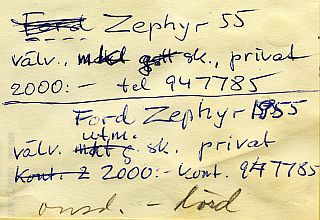 Ford Zephyr 55
välv., mkt gott sk., privat
2000:- tel 947785
Ford Zephyr 1955
utm.
välv. mkt g sk. privat
Kont. 2 2000:- kont. 947785
onsd. - lörd